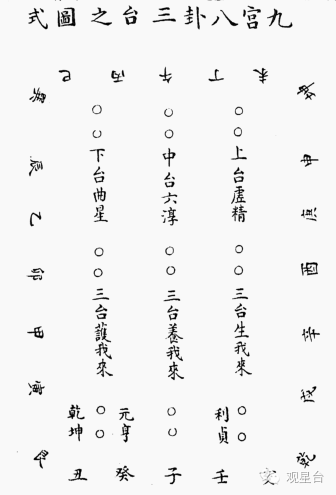 九宮八卦三台之圖式
未
丁
午
丙
巳
坤
申
庚
酉
辛
戌
乾
上台虛精
三台生我來
利貞
中台六淳
三台養我來
元亨
下台曲星
三台護我來
乾坤
巽
辰
乙
卯
甲
寅
艮
丑
癸
子
壬
亥
观星台